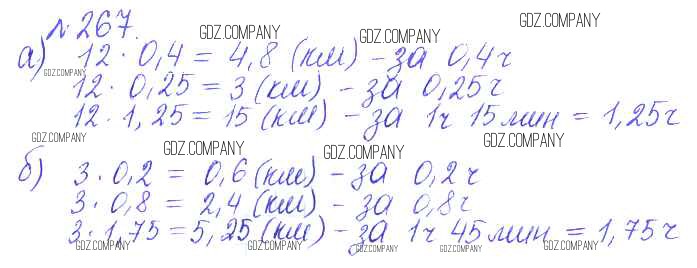 № 267.
GDZ.COMPANY GDZ.COMPANY GDZ.COMPANY
а) 12 · 0,4 = 4,8 (км) – за 0,4 ч
GDZ.COMPANY
12 · 0,25 = 3 (км) – за 0,25 ч
12 · 1,25 = 15 (км) – за 1 ч 15 мин = 1,25 ч
GDZ.COMPANY GDZ.COMPANY GDZ.COMPANY GDZ.COMPANY
б) 3 · 0,2 = 0,6 (км) – за 0,2 ч
3 · 0,8 = 2,4 (км) – за 0,8 ч
3 · 1,75 = 5,25 (км) – за 1 ч 45 мин = 1,75 ч
GDZ.COMPANY GDZ.COMPANY GDZ.COMPANY GDZ.COMPANY GDZ.COMPANY